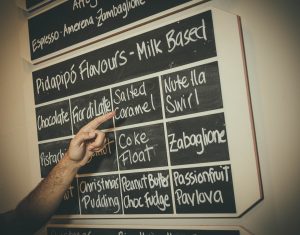 Espresso - Amarena Zambaglione
Pidapipó Flavours - Milk Based
Chocolate
Fior di Latte
Salted Caramel
Nutella Swirl
Pistachio
Coke Float
Zabaglione
Christmas Pudding
Peanut Butter Choc Fudge
Passionfruit Pavlova